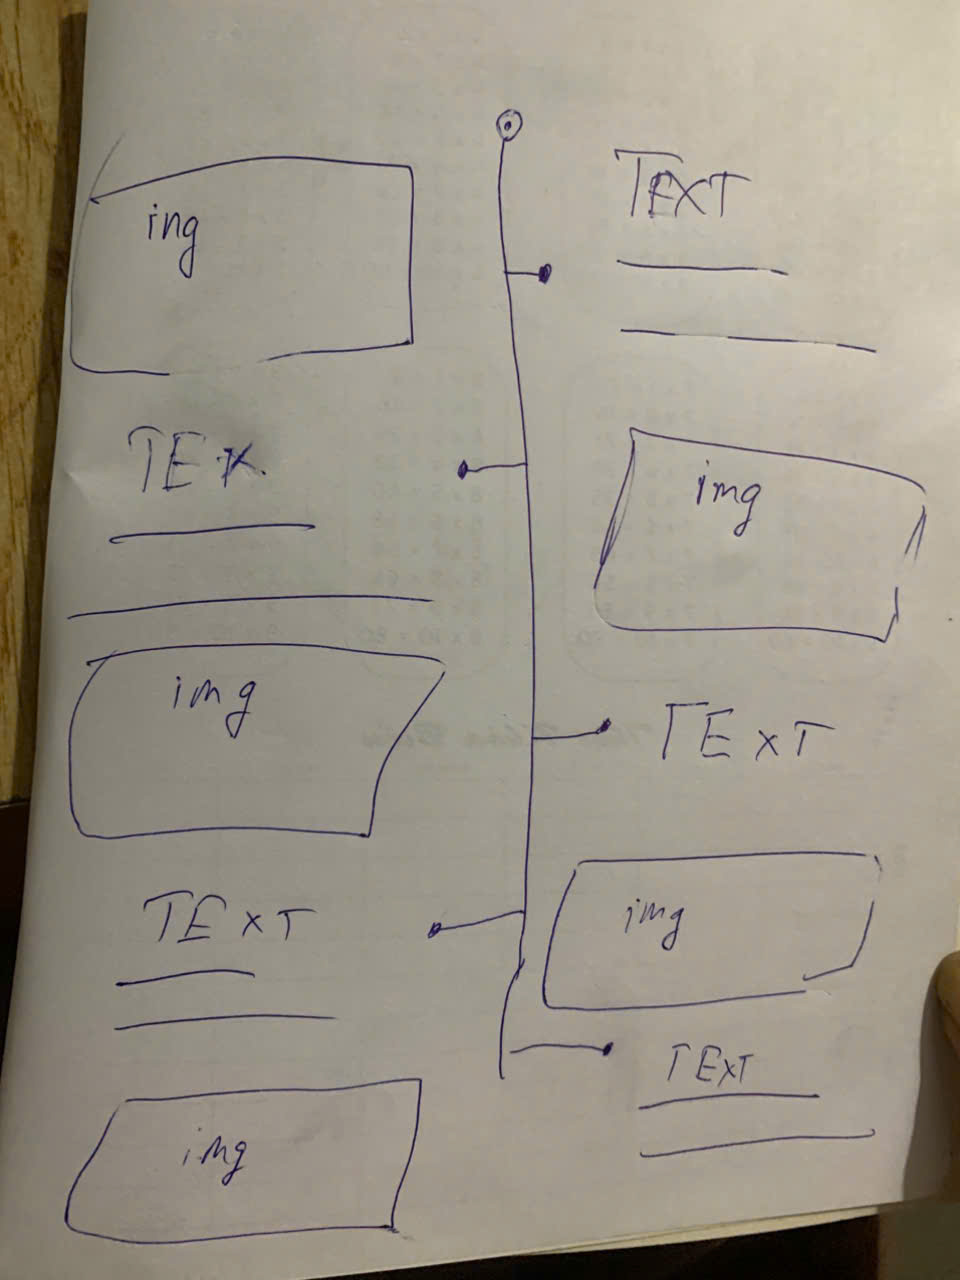 ing
TEXT
TEX
img
img
TEXT
TEXT
img
TEXT
img